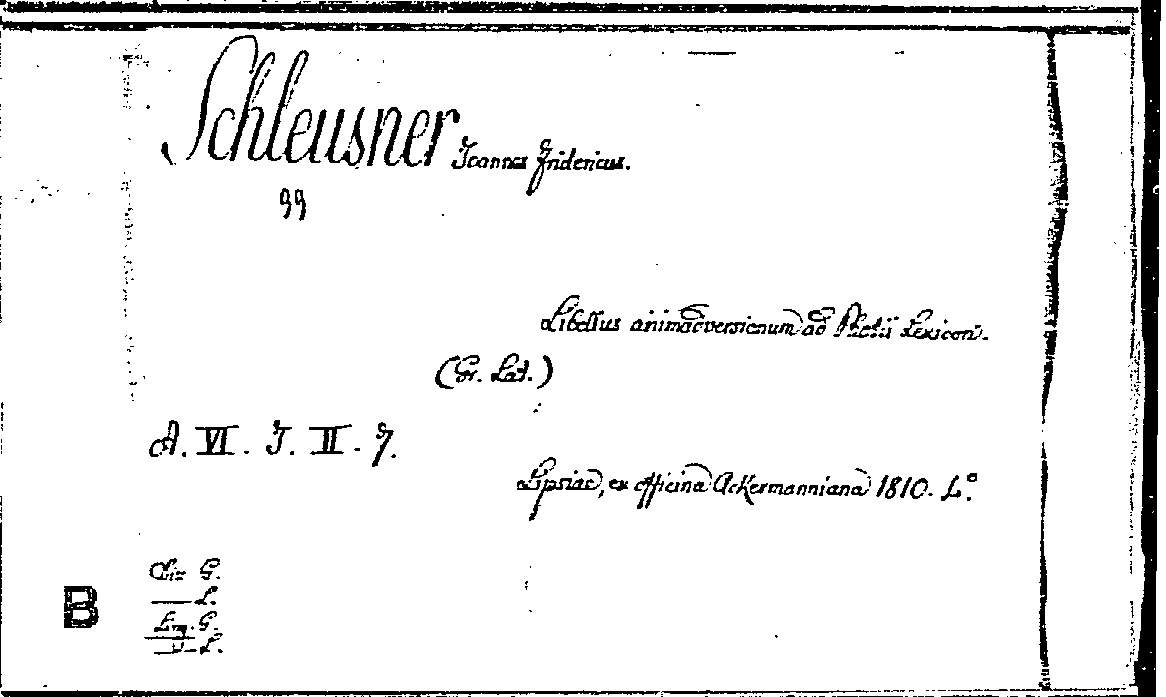 Schleusner Joannes Fridericus.
99
Libellus animadversionum ad Photii Lexicon.
(Gr. Lat.)
A. VI. J. II. 7.
Lipsiae, ex officina Ackermanniana 1810. 4.°
G.
— L.
G.
— L.
B